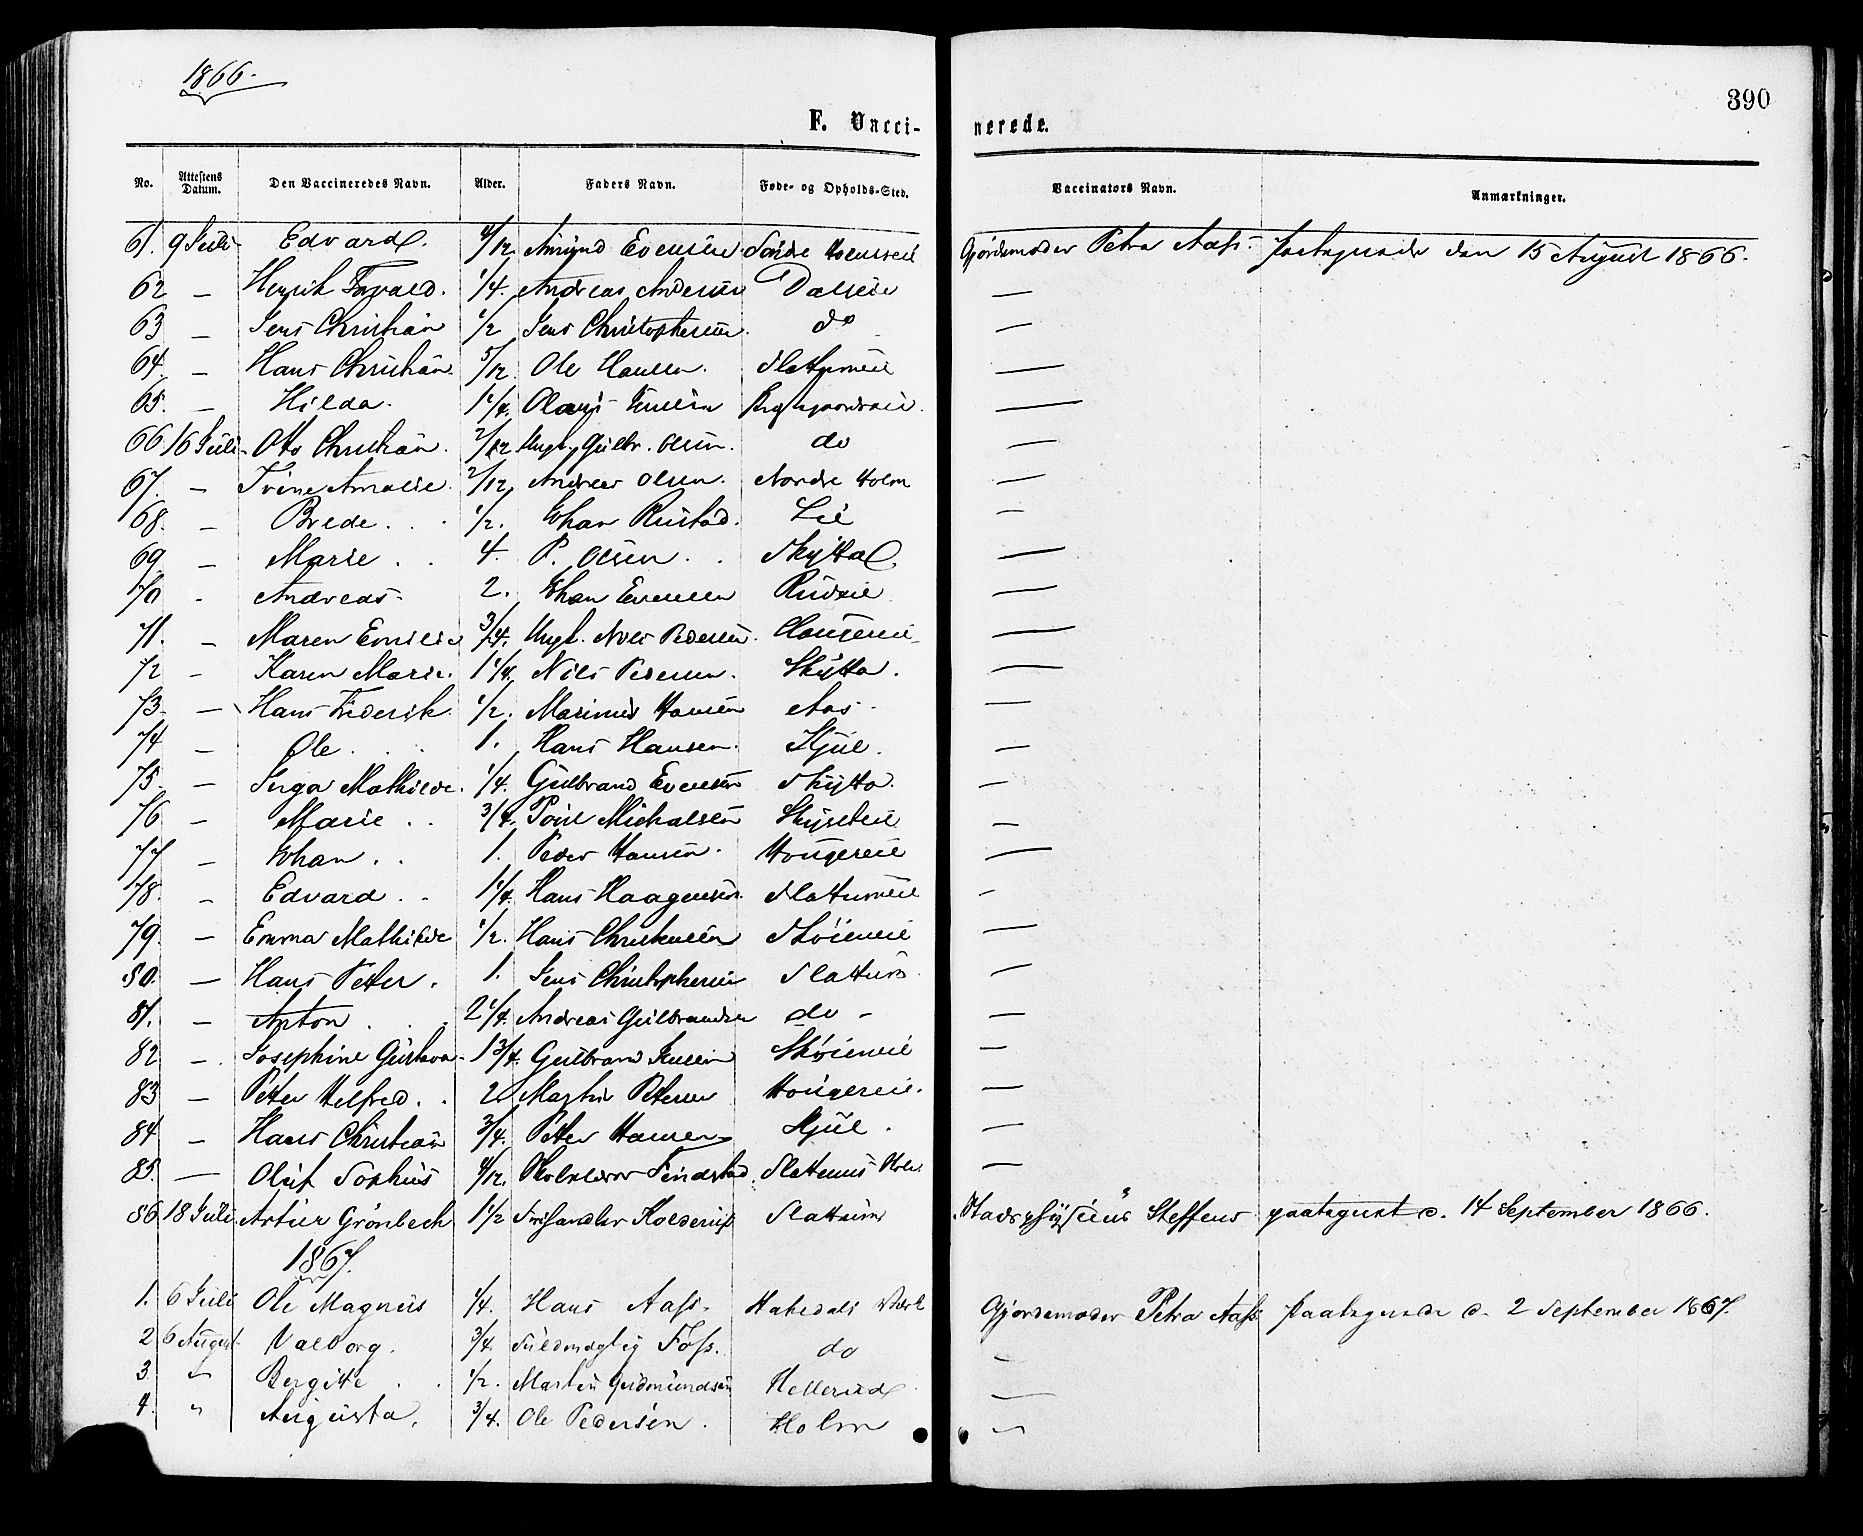 1866.
390
F. Vacci- nerede.
No. Attestens Datum. Den Vaccineredes Navn. Alder. Faders Navn. Føde- og Opholds-Sted. Vaccinators Navn. Anmærkninger.
61. 9 Juli - Edvard. 4/12 Evensen Søndre Gjordemoder Petra Aass. paategnede den 15 August 1866.
62 — Henrik 1/4. Andreas Andersen —
63 — Jens Christian 1/2 Jens Christophersen. do —
64. — Hans Christian 5/12 Ole Hansen. Slattumeie —
65. — Hilda. 1 1/4. —
66 16 Juli - Otto Christian. 2/12 Ungk. Gulbr. Olsen. do —
67. — Trine Amalie. 2/12 Andreas Olsen. Nordre Holm —
68. — Brede. 1/2. Johan Rustad. Lie —
69. — Marie 4. P. Olsen. —
70 - Andreas 2. Johan Evensen Rudseie —
71. — Maren Emilie 3/4. Ungk. Nils Pedersen. Haugereie —
72 — Karen Marie. 1 1/4. Nils Pedersen. Skytta. —
73 — Hans Frederik. 1/2. Marinus Hansen Aas. —
74 — Ole. 1. Hans Hansen. Kjul. —
75. — Inga Mathilde. 1/4. Gulbrand Evensen Skytta. —
76. — Marie 3/4. Povel Michalsen —
77 — Johan. 1. Peder Hansen. Hougereie —
78. — Edvard 1 1/4. Hans Haagensen. Slattumeie —
79. — Emma Mathilde 1/2. Hans Christensen Skøieneie —
80. — Hans Petter. 1. Jens Christophersen Slattum —
81. — Anton 2 1/4. Andreas Gulbrandsen do — —
82 — Josephine Gustava - 1 3/4. Gulbrand Jensen Skøieneie —
83 — Petter Helfred. 2 Martin Petersen Hougereie. —
84 — Hans Christian 3/4. Petter Hansen Kjul. —
85. — Oluf Sophus 4/12. Slattums —
86. 18 Juli Artur Grønbech 1 1/2 Slattum Stadsphysicus Steffens paategnet d. 14 September 1866.
1867.
1. 6 Juli Ole Magnus 1/4. Hans Aass. Hakedals Værk Gjordemoder Petra Aass paategnede d. 2 September 1867.
2 6 August Valborg. 3/4. Fuldmægtig Foss. do —
3 " Bergitte 1/2. Martin Gudmundsen Hellerud —
4. " Augusta. 3/4. Ole Pedersen. Holm —